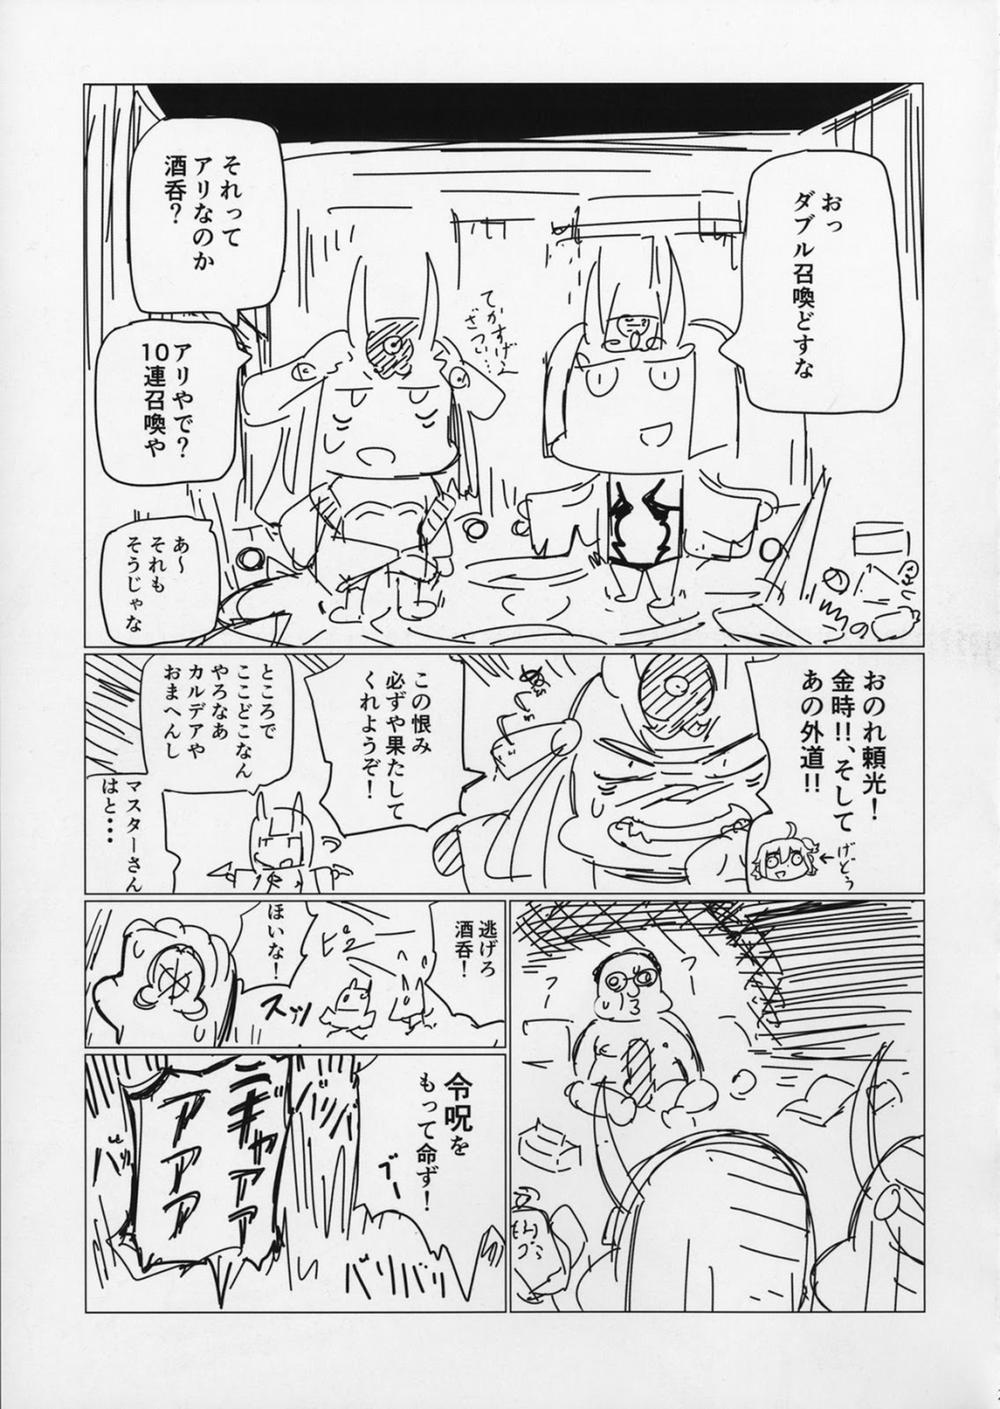 おっ
ダブル召喚どすな
それって
アリなのか
酒呑？
アリやで？
10連召喚や
あ〜
それも
そうじゃな
おのれ頼光！
金時!!、そして
あの外道!!
げどう
この恨み
必ずや果たして
くれようぞ！
ところで
ここどこなん
やろなあ
カルデアや
おまへんし
マスターさん
はと・・・
フー
フー
逃げろ
酒呑！
ほいな！
スッ
令呪を
もって命ず！
ブーー
ニギャァァァ
アアアア
バババ
バリバリ